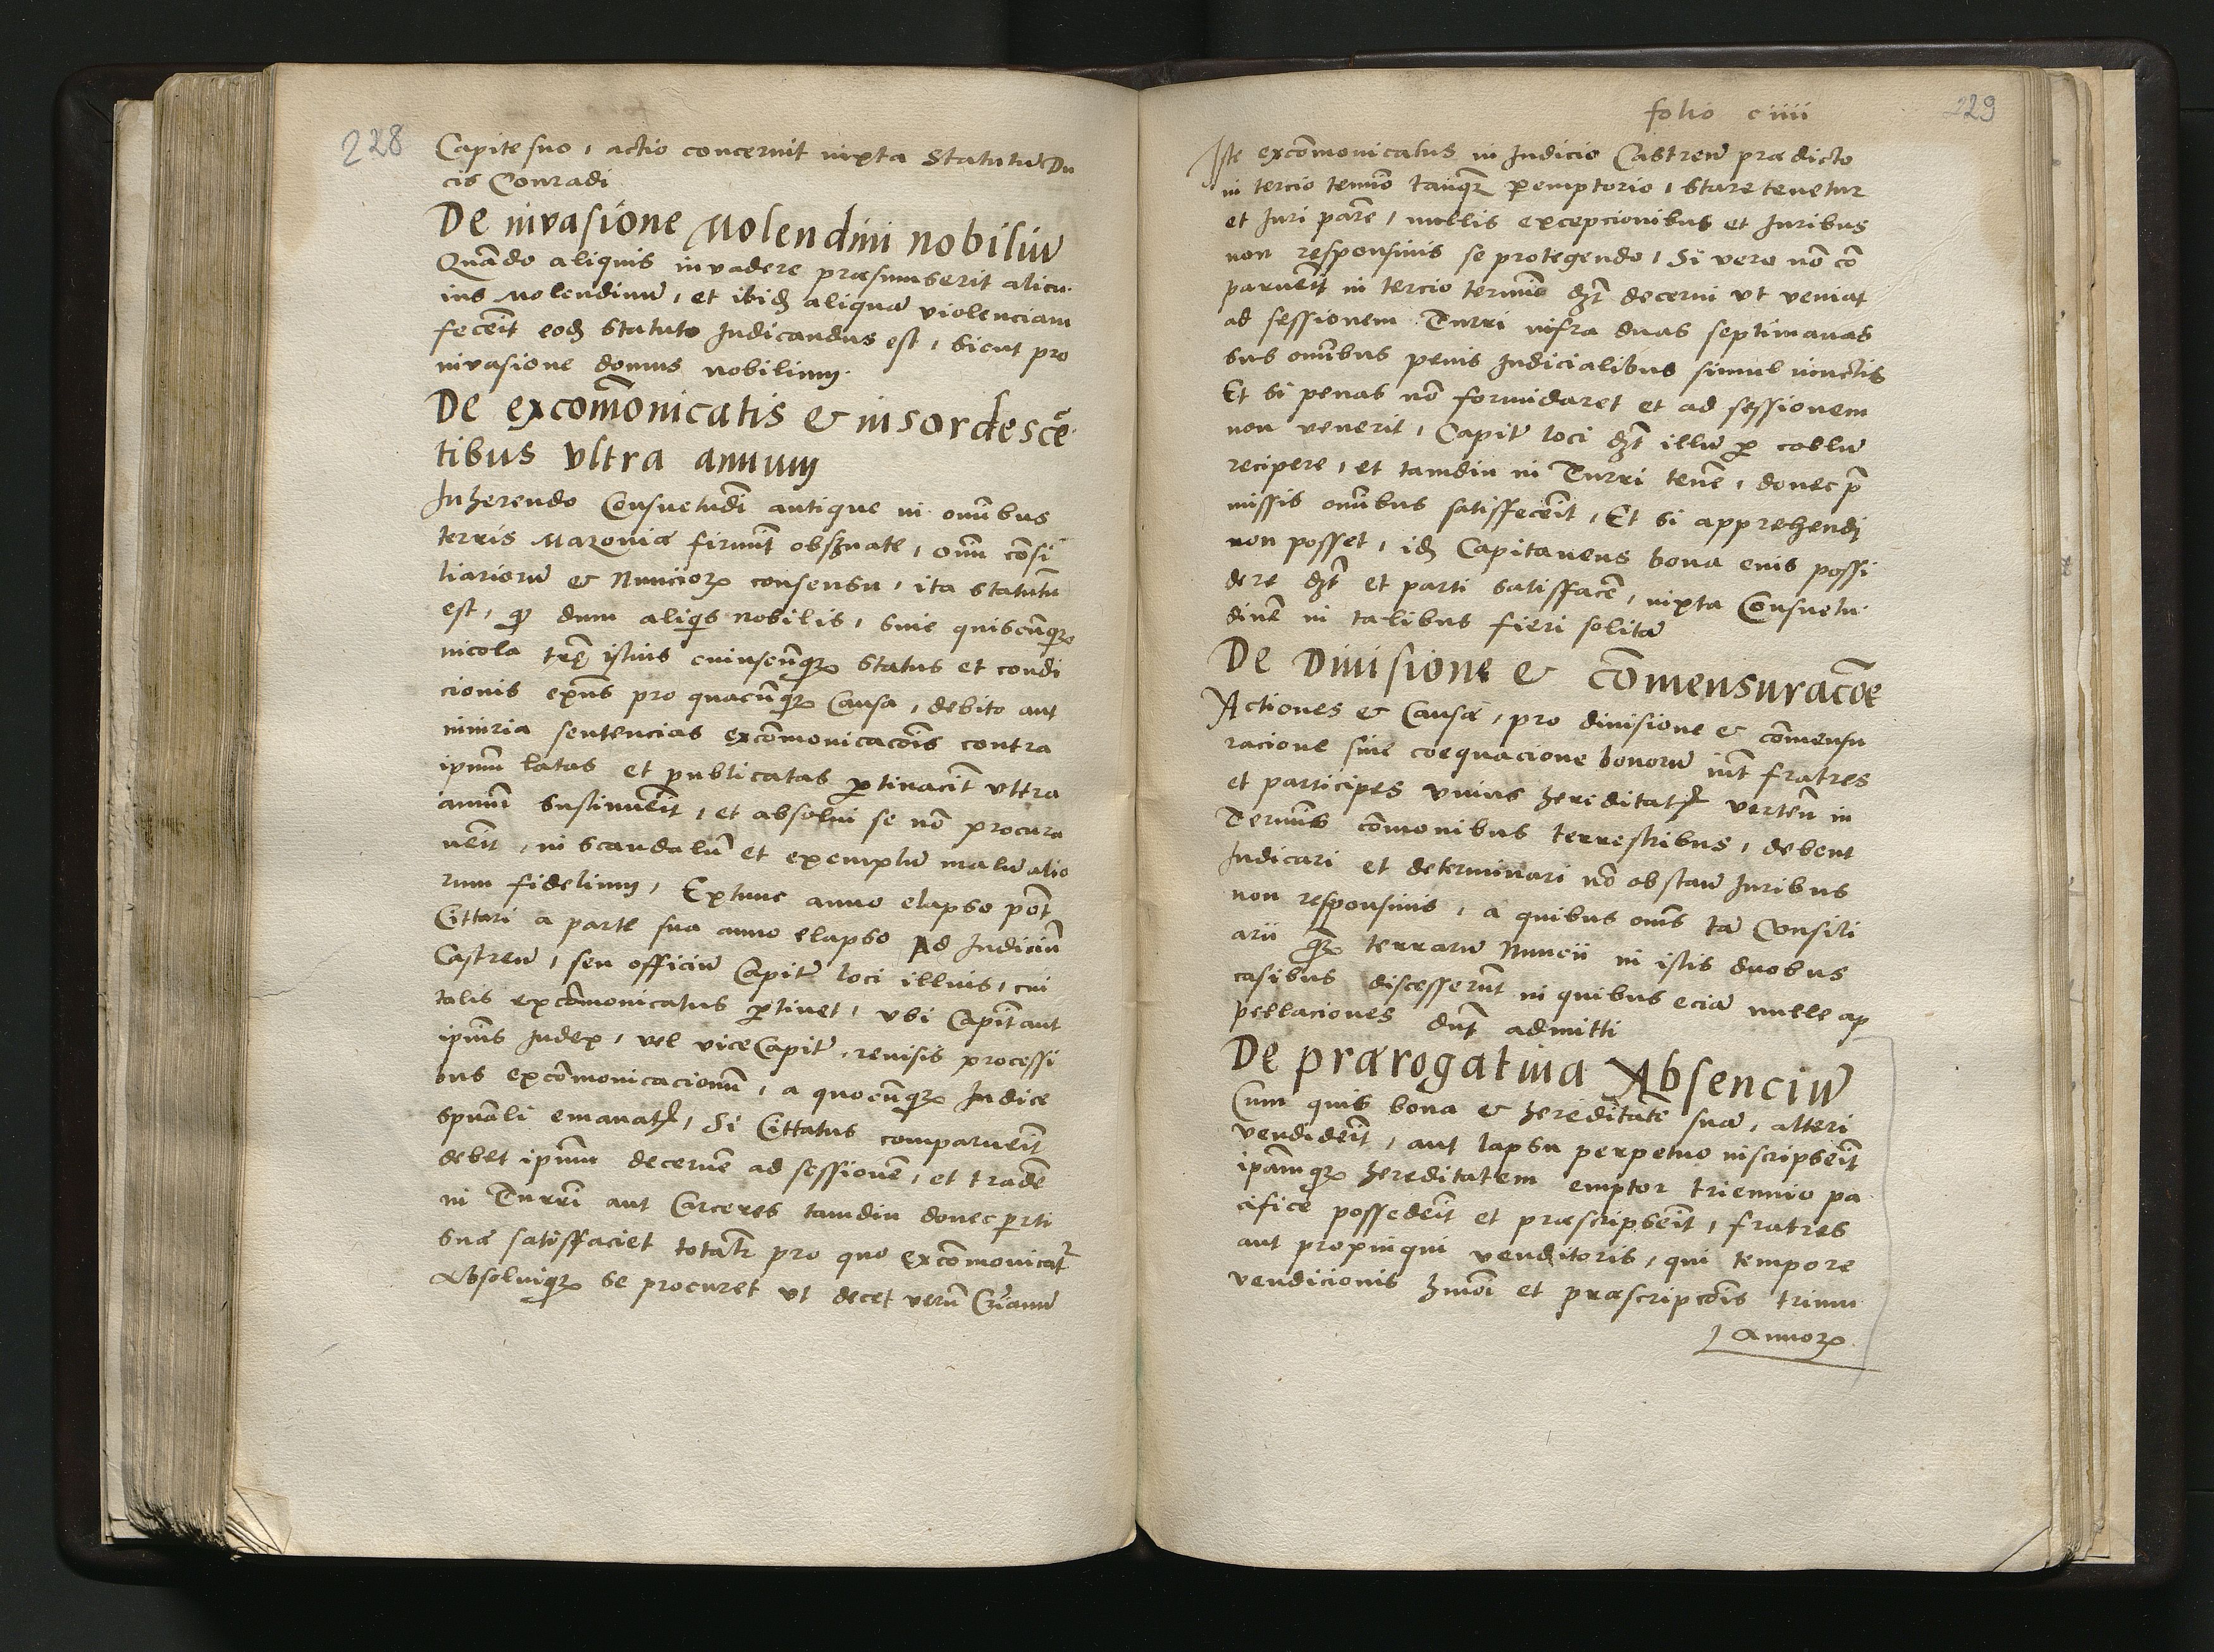 228
Capite suo, actio concernit iuxta Statutū Du
cis Conradi
De invasione Molendini nobiliū
Quādo aliquis invadere præsumserit alicu-
ius Molendinū, et ibidē aliquā violenciam
fecerit eodē Statuto Iudicandus est, sicut pro
invasione domus nobilium.
De excōmonicatis & insordescē
tibus vltra annum
Inherendo Consuetudī antique in omībus
terris Mazoviæ firmīt obseruate, omī consi
liariorū & Nuncioꝝ consensu, ita statutū
est, qꝫ dum aliqͥs nobilis, siue quiscūqꝫ
incola trē istius cuiuscūqꝫ status et condi
cionis exīs pro quacūqꝫ Causa, debito aut
iniuria sentencias excōmonicacōīs contra
ipm̄ latas et publicatas ꝑtinacīt vltra
annū sustinueīt, et absolui se nō procura
ueīt, in scandalū et exemplū malū alio
rum fidelium, Extunc anno elapso pōt
Cittari a parte sua anno elapso Ad Iudiciū
Castreū, seu officiū Capitꝭ loci illius, cui
talis excōmonicatus ꝑtinet, vbi Capīt aut
ipīus Iudex, vel vice Capitꝭ, reuisis processi
bus excōmonicacionū, a quocūqꝫ Iudice
spūali emanatꝭ, Si Cittatus comparueīt
debet ipm̄ decernē ad sessionē, et tradē
in Turrī aut Carceres tamdiu donec pͣrti
suæ satisffaciet totalr̄ pro quo excōmonicatꝰ
Absoluiqꝫ se procuret vt decet verū Cr̄ianū
folio ciiii
229
Iste excōmonicatus in Iudicio Castreñ prædicto
in tercio termīo tanqꝫ ꝑemptorio, stare tenetur
et Iuri parē, nullis excepcionibus et Iuribus
non responsiuis se protegendo, Si vero nō cō
parueīt in tercio termīo dꝫt decerni vt veniat
ad sessionem Turri infra duas septimanas
sus omībus penis Iudicialibus simul iunctis
Et si penas nō formidaret et ad sessionem
non venerit, Capitꝰ loci dꝫt illū ꝑ coblū
recipere, et tamdiu in Turri tenē, donec pͣ
missis omībus satisffeceīt, Et si apprehendi
non posset, idē Capitaneus bona eius possi
dere dꝫt et parti satisffacē, iuxta Consuetu-
dinē in talibus fieri solitā
De Diuisione & cōmensuracōe
Actiones & Causæ, pro diuisione & cōmensu
racione siue coequacione bonorū iīt fratres
et participes vnius hereditatꝭ verteñ in
Termīs cōmonibus terrestribus, debent
Iudicari et determinari nō obstañ Iuribus
non responsiuis, a quibus om̄s tā Consili
arii qꝫ terrarū Nuncii in istis duobus
casibus discesserūt in quibus eciā nulle ap
pellaciones dn̄t admitti
De prærogatiua Absenciū
Cum quis bona & hereditatē suā, alteri
vendideīt, aut lapsu perpetuo inscripseīt
ipāmqꝫ hereditatem emptor triennio pa
cifice possedeīt et præscripseīt, fratres
aut propinqui venditoris, qui tempore
vendicionis hmōī et præscripcōīs trium
Annoꝝ